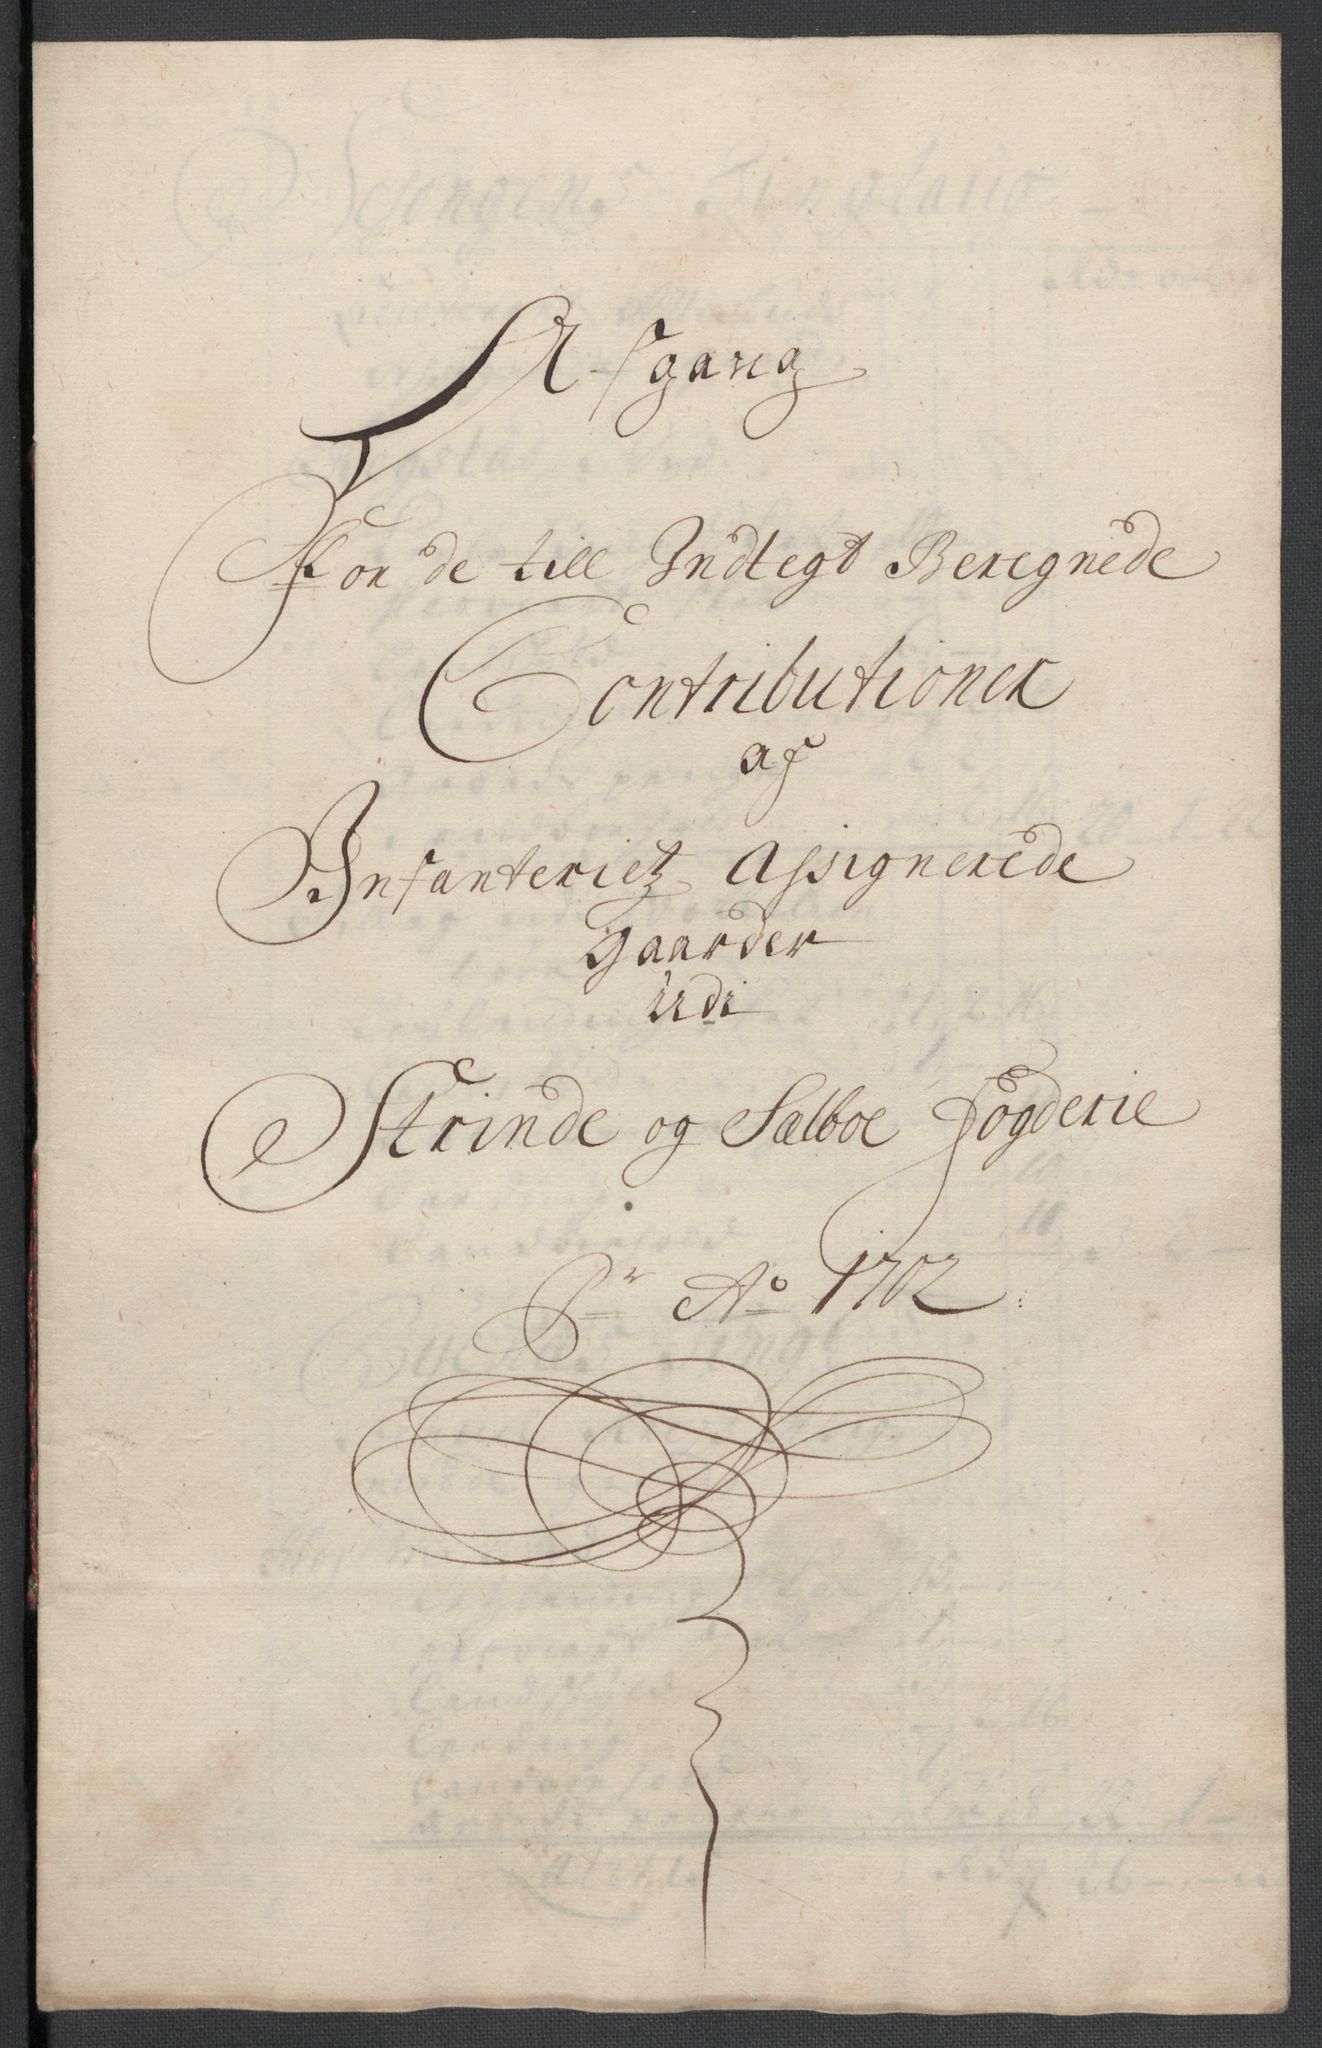 Afgang
For de till Indtegt Beregnede
Contributioner
af
Infanteriets Assignerede
Gaarder
udi
Strinde og Sælboe fogderie
Pr Ao 1702